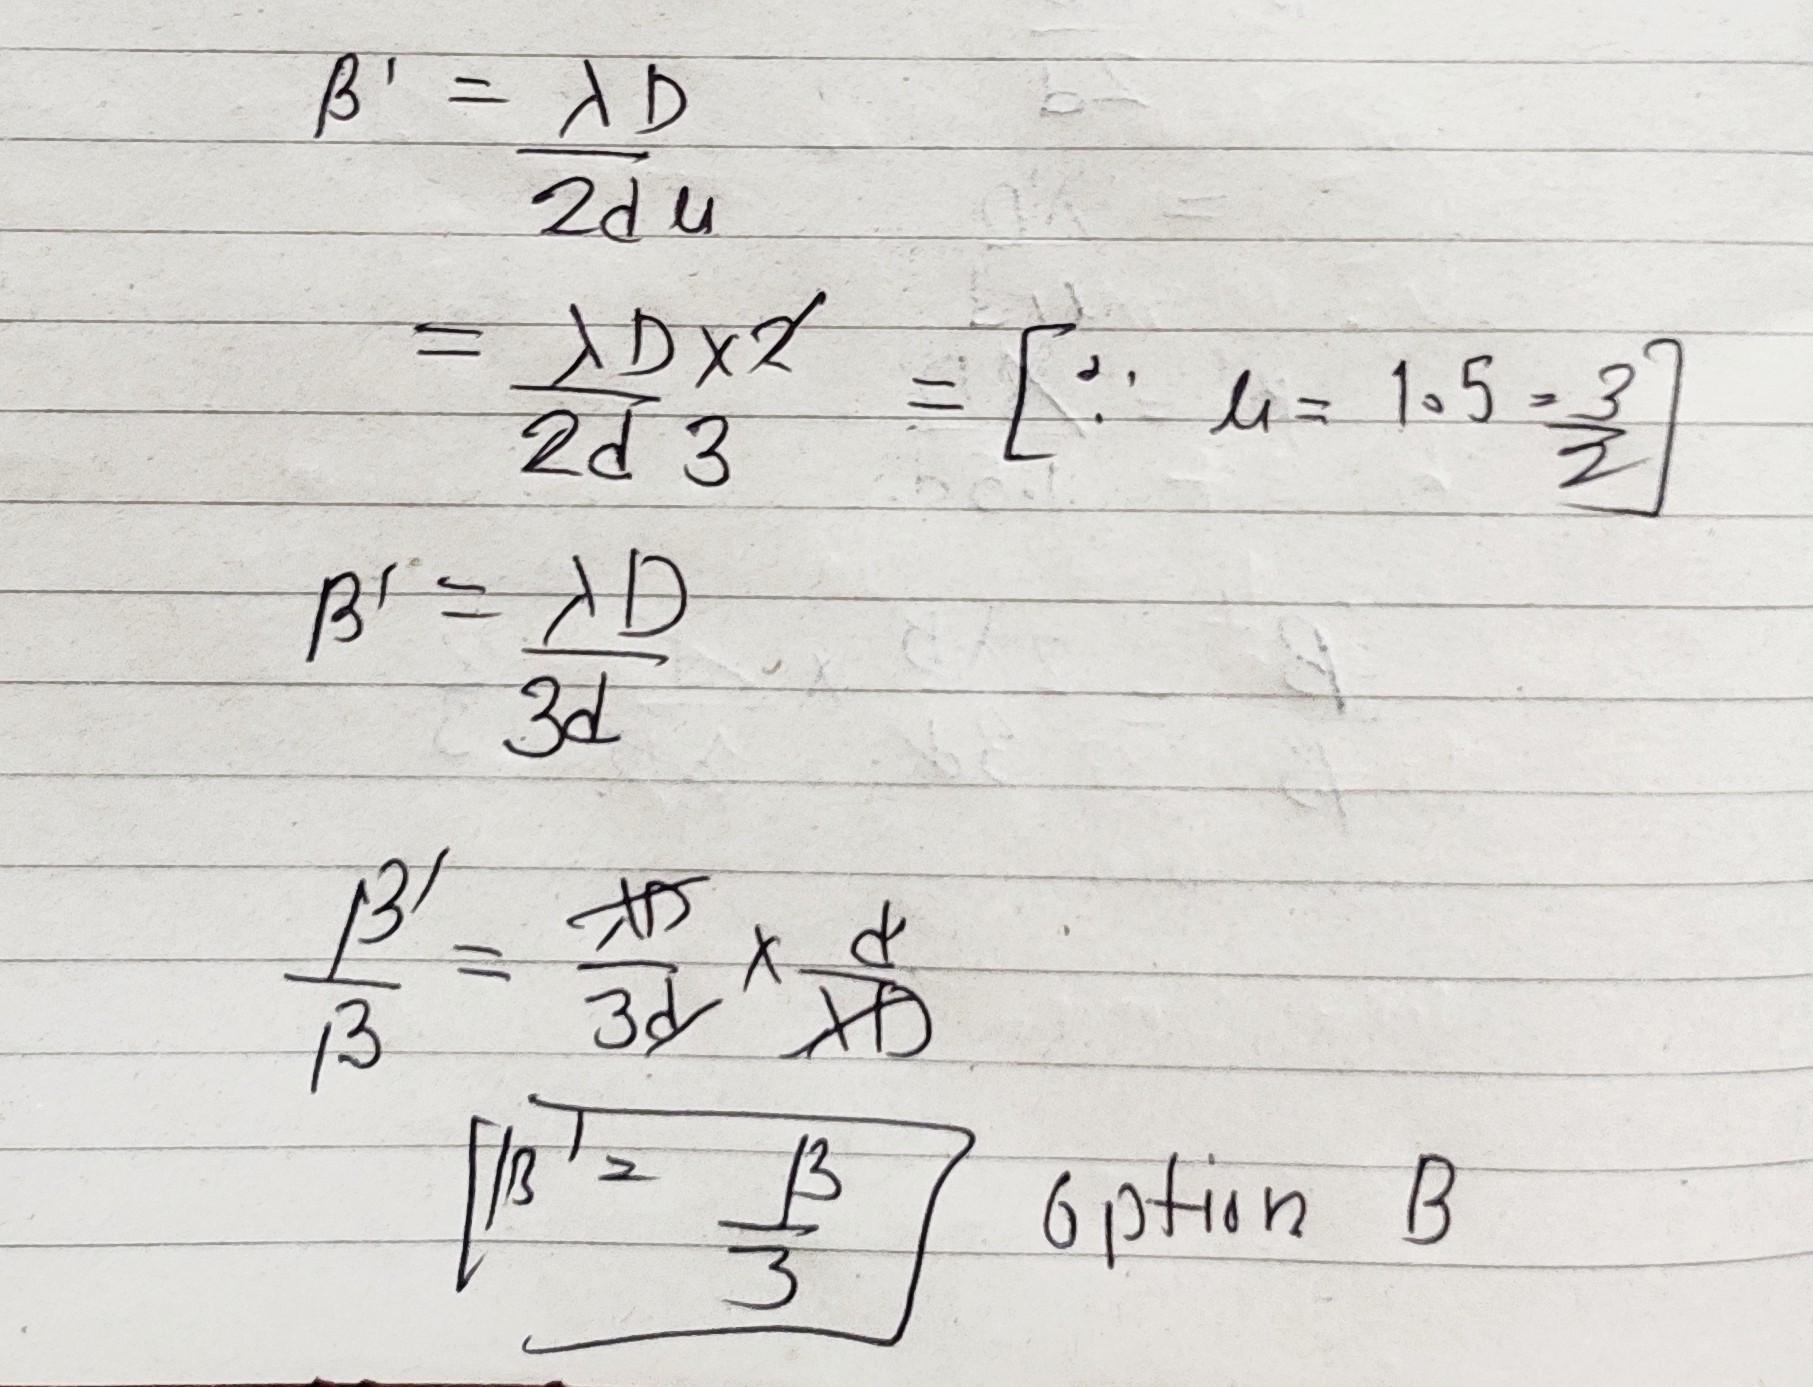 β' = λD / 2dμ
= λD×2 / 2d 3 = [∵ μ = 1.5 = 3/2]
β' = λD / 3d
β'/β = λD/3d × d/λD
β' = β/3 option B